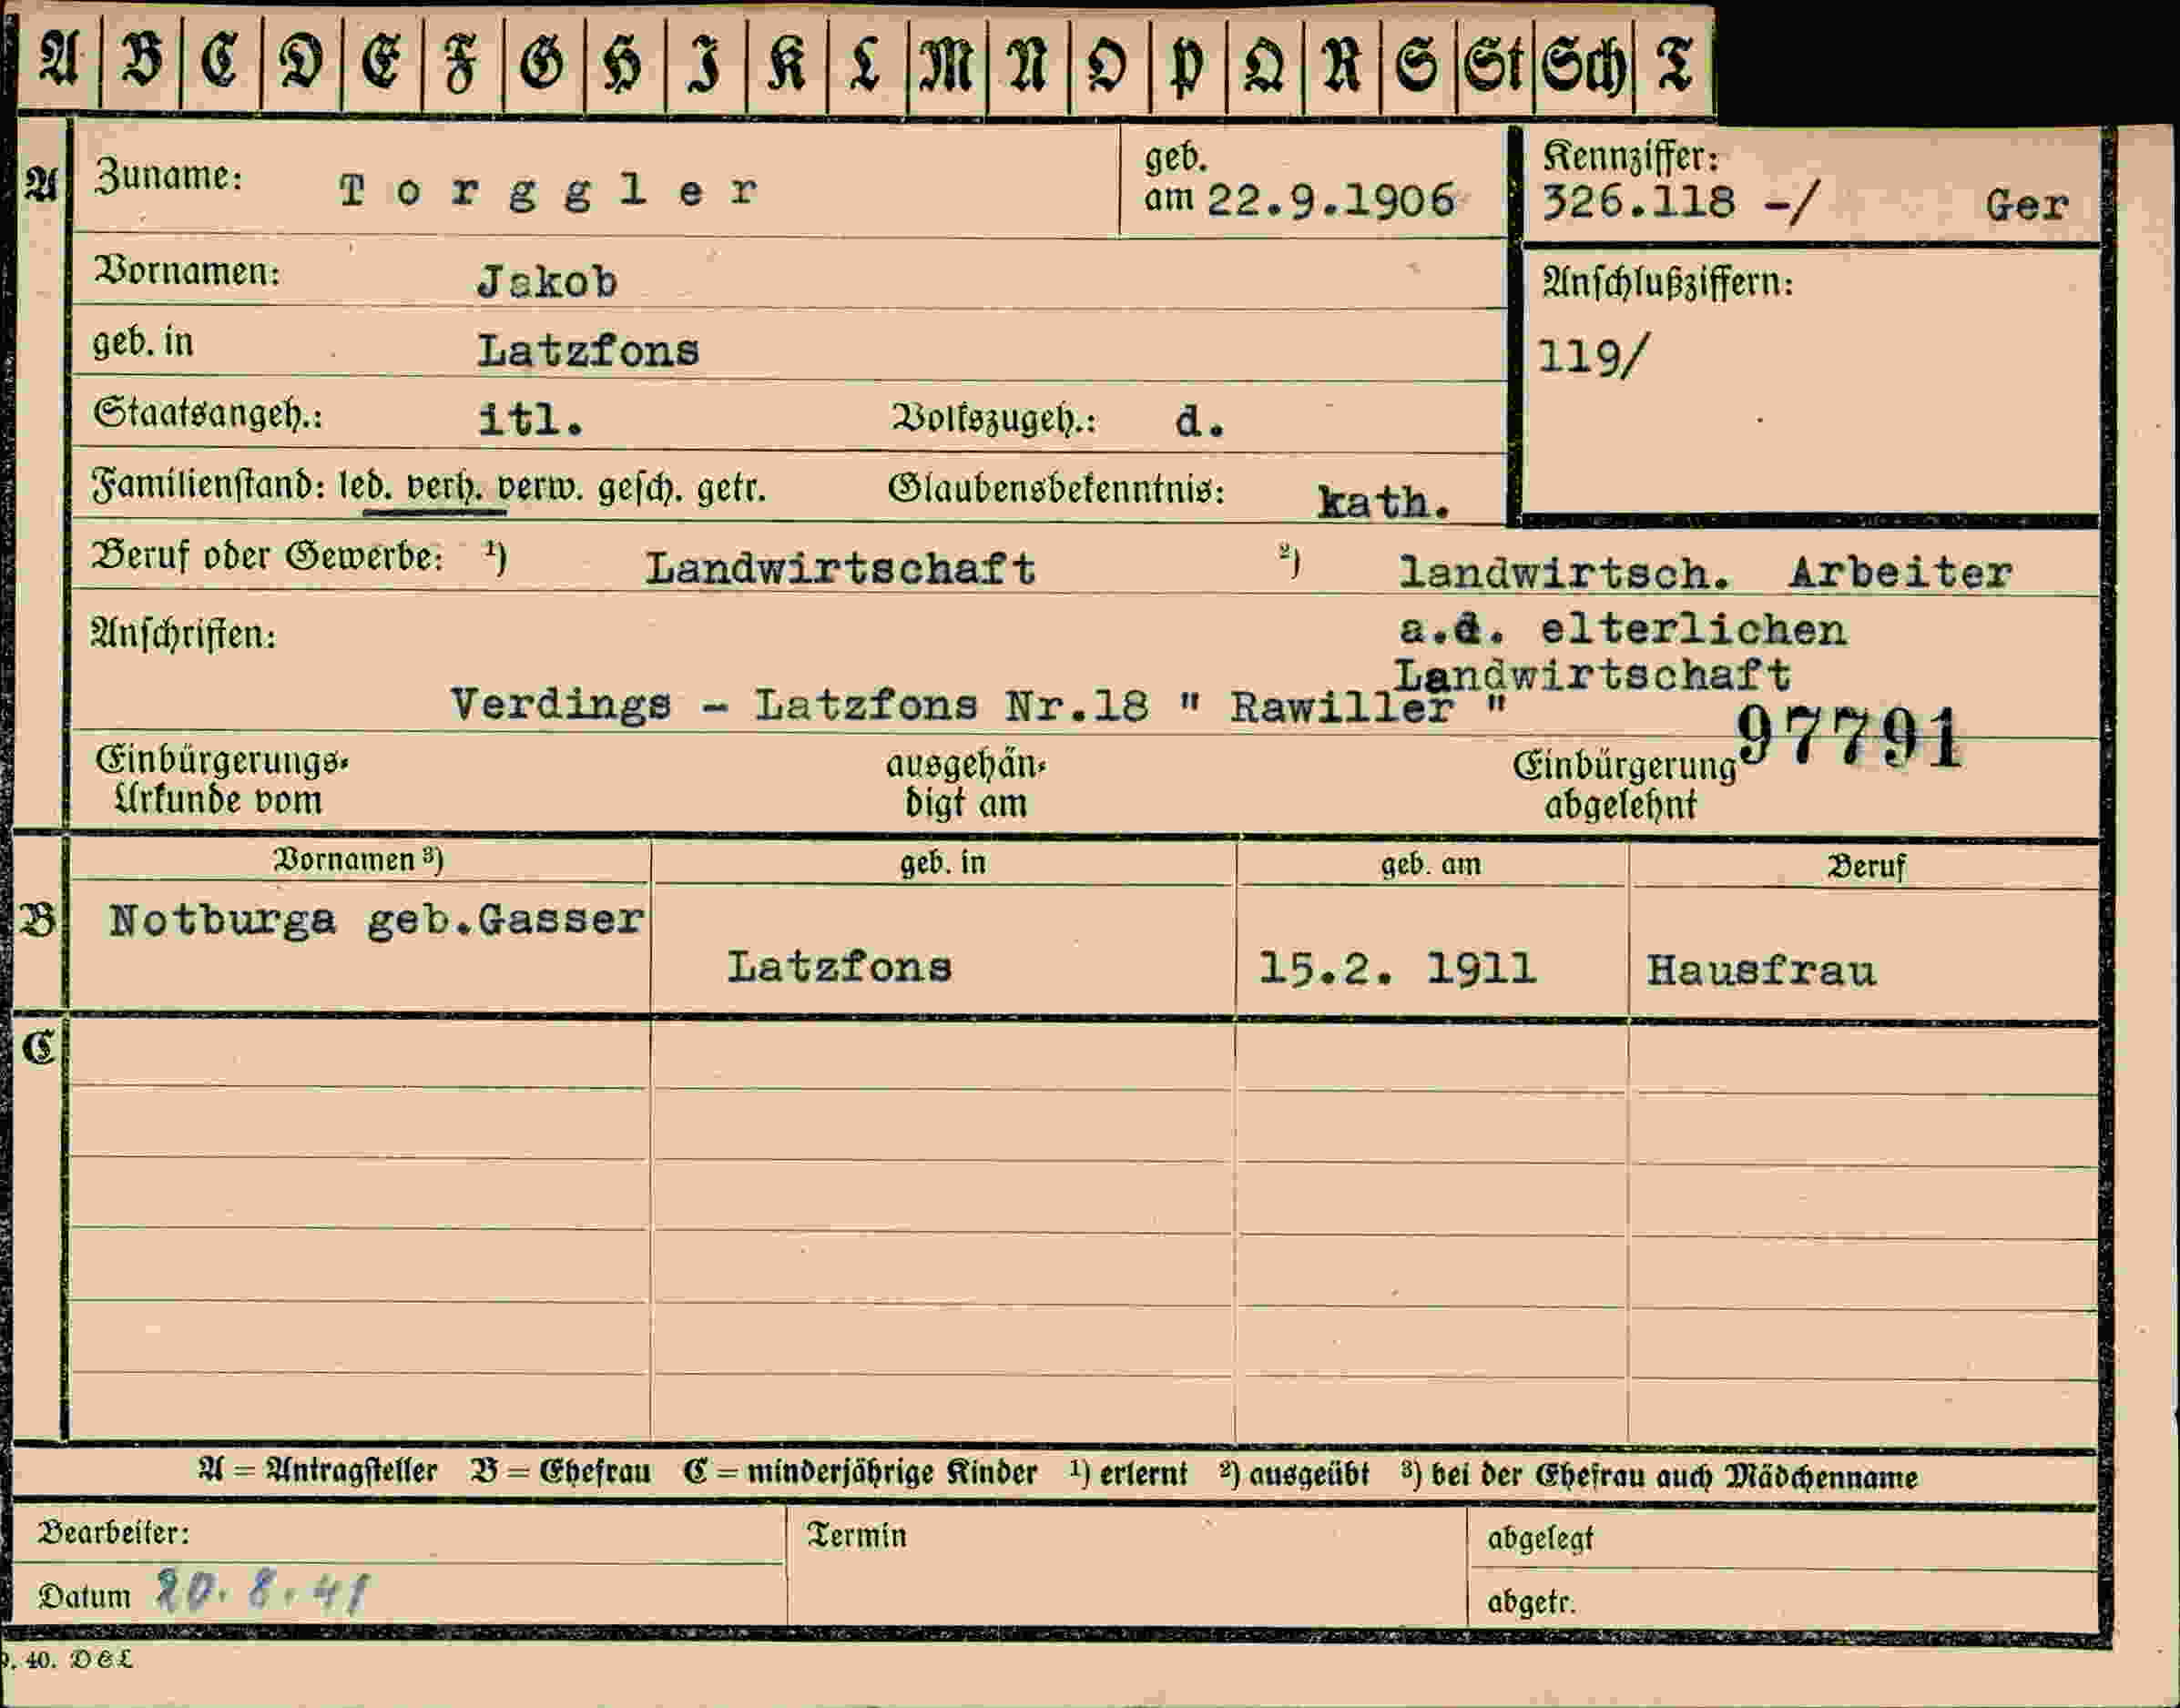 A B C D E F G H I K L M N O P Q R S St Sch T
A Zuname: Torggler geb. am 22.9.1906 Kennziffer: 326.118 -/ Ger
Vornamen: Jakob Anschlußziffern:
geb. in Latzfons 119/
Staatsangeh.: itl. Volkszugeh.: d.
Familienstand: led. verh. verw. gesch. getr. Glaubensbekenntnis: kath.
Beruf oder Gewerbe: ¹) Landwirtschaft ²) landwirtsch. Arbeiter
Anschriften: a.d. elterlichen
Landwirtschaft
Verdings - Latzfons Nr.18 " Rawiller "
97791
Einbürgerungs- ausgehän- Einbürgerung
Urkunde vom digt am abgelehnt
Vornamen ³) geb. in geb. am Beruf
B Notburga geb.Gasser
Latzfons 15.2. 1911 Hausfrau
C
A = Antragsteller B = Ehefrau C = minderjährige Kinder ¹) erlernt ²) ausgeübt ³) bei der Ehefrau auch Mädchenname
Bearbeiter: Termin abgelegt
Datum 20.8.41 abgetr.
40. D & L